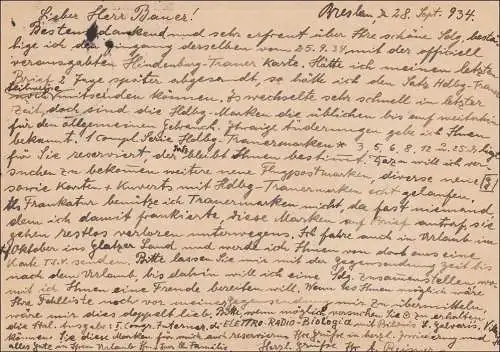 Lieber Herr Bauer! Breslau, d 28. Sept. 934.
Bestens dankend und sehr erfreut über Ihre schöne Sdg. bestä-
tige ich den Eingang derselben vom 25.9.34, mit der officiell
verausgabten Hindenburg-Trauer Karte. Hätte ich meinen letzten
Brief 2 Tage später abgesandt, so hätte ich den Satz Hdbg-Trauer
teilweise mitsenden können. Es wechselte sehr schnell in letzter
Zeit, doch sind die Hdbg-Marken die üblichen bis auf weiteres
für den allgemeinen Gebrauch. Etwaige Änderungen gebe ich Ihnen
bekannt. 1 Compl. Serie Hdbg-Trauermarken * 3, 5, 6, 8, 12 u. 25 liegt
für Sie reserviert, der Satz bleibt Ihnen bestimmt. Dazu will ich ver-
suchen zu bekommen weitere neue Flugpostmarken, diverse neue
sowie Karten u Kuverts mit Hdbg-Trauermarken echt gelaufen.
Als Frankatur benütze ich Trauermarken nicht, da fast niemand
dem ich damit frankierte, diese Marken auf Brief antraf, sie
gehen restlos verloren unterwegens. Ich fahre auch in Urlaub im
Oktober ins Glatzer Land und werde ich Ihnen von dort aus eine
Karte senden. Bitte lassen Sie mir mit der Gegensendung Zeit bis
nach dem Urlaub, bis dahin will ich eine Sdg. zusammenstellen, wo-
mit ich Ihnen eine Freude bereiten will. Wenn es Ihnen möglich wäre
Ihre Fehlliste noch vor meiner Gegensendung mir zu übermitteln
wäre mir dies doppelt lieb. Bitte, wenn möglich versuchen Sie zu erhalten
die Ital. Ausgabe: I. Congr. Internaz. di ELETTRO-RADIO-BIOLOGIA mit Bildnis L. Galvanis,
können Sie diese Marken für mich reservieren
alles Gute in Ihrem Urlaub Ihr u Familie Herzl. Grüsse Ihr